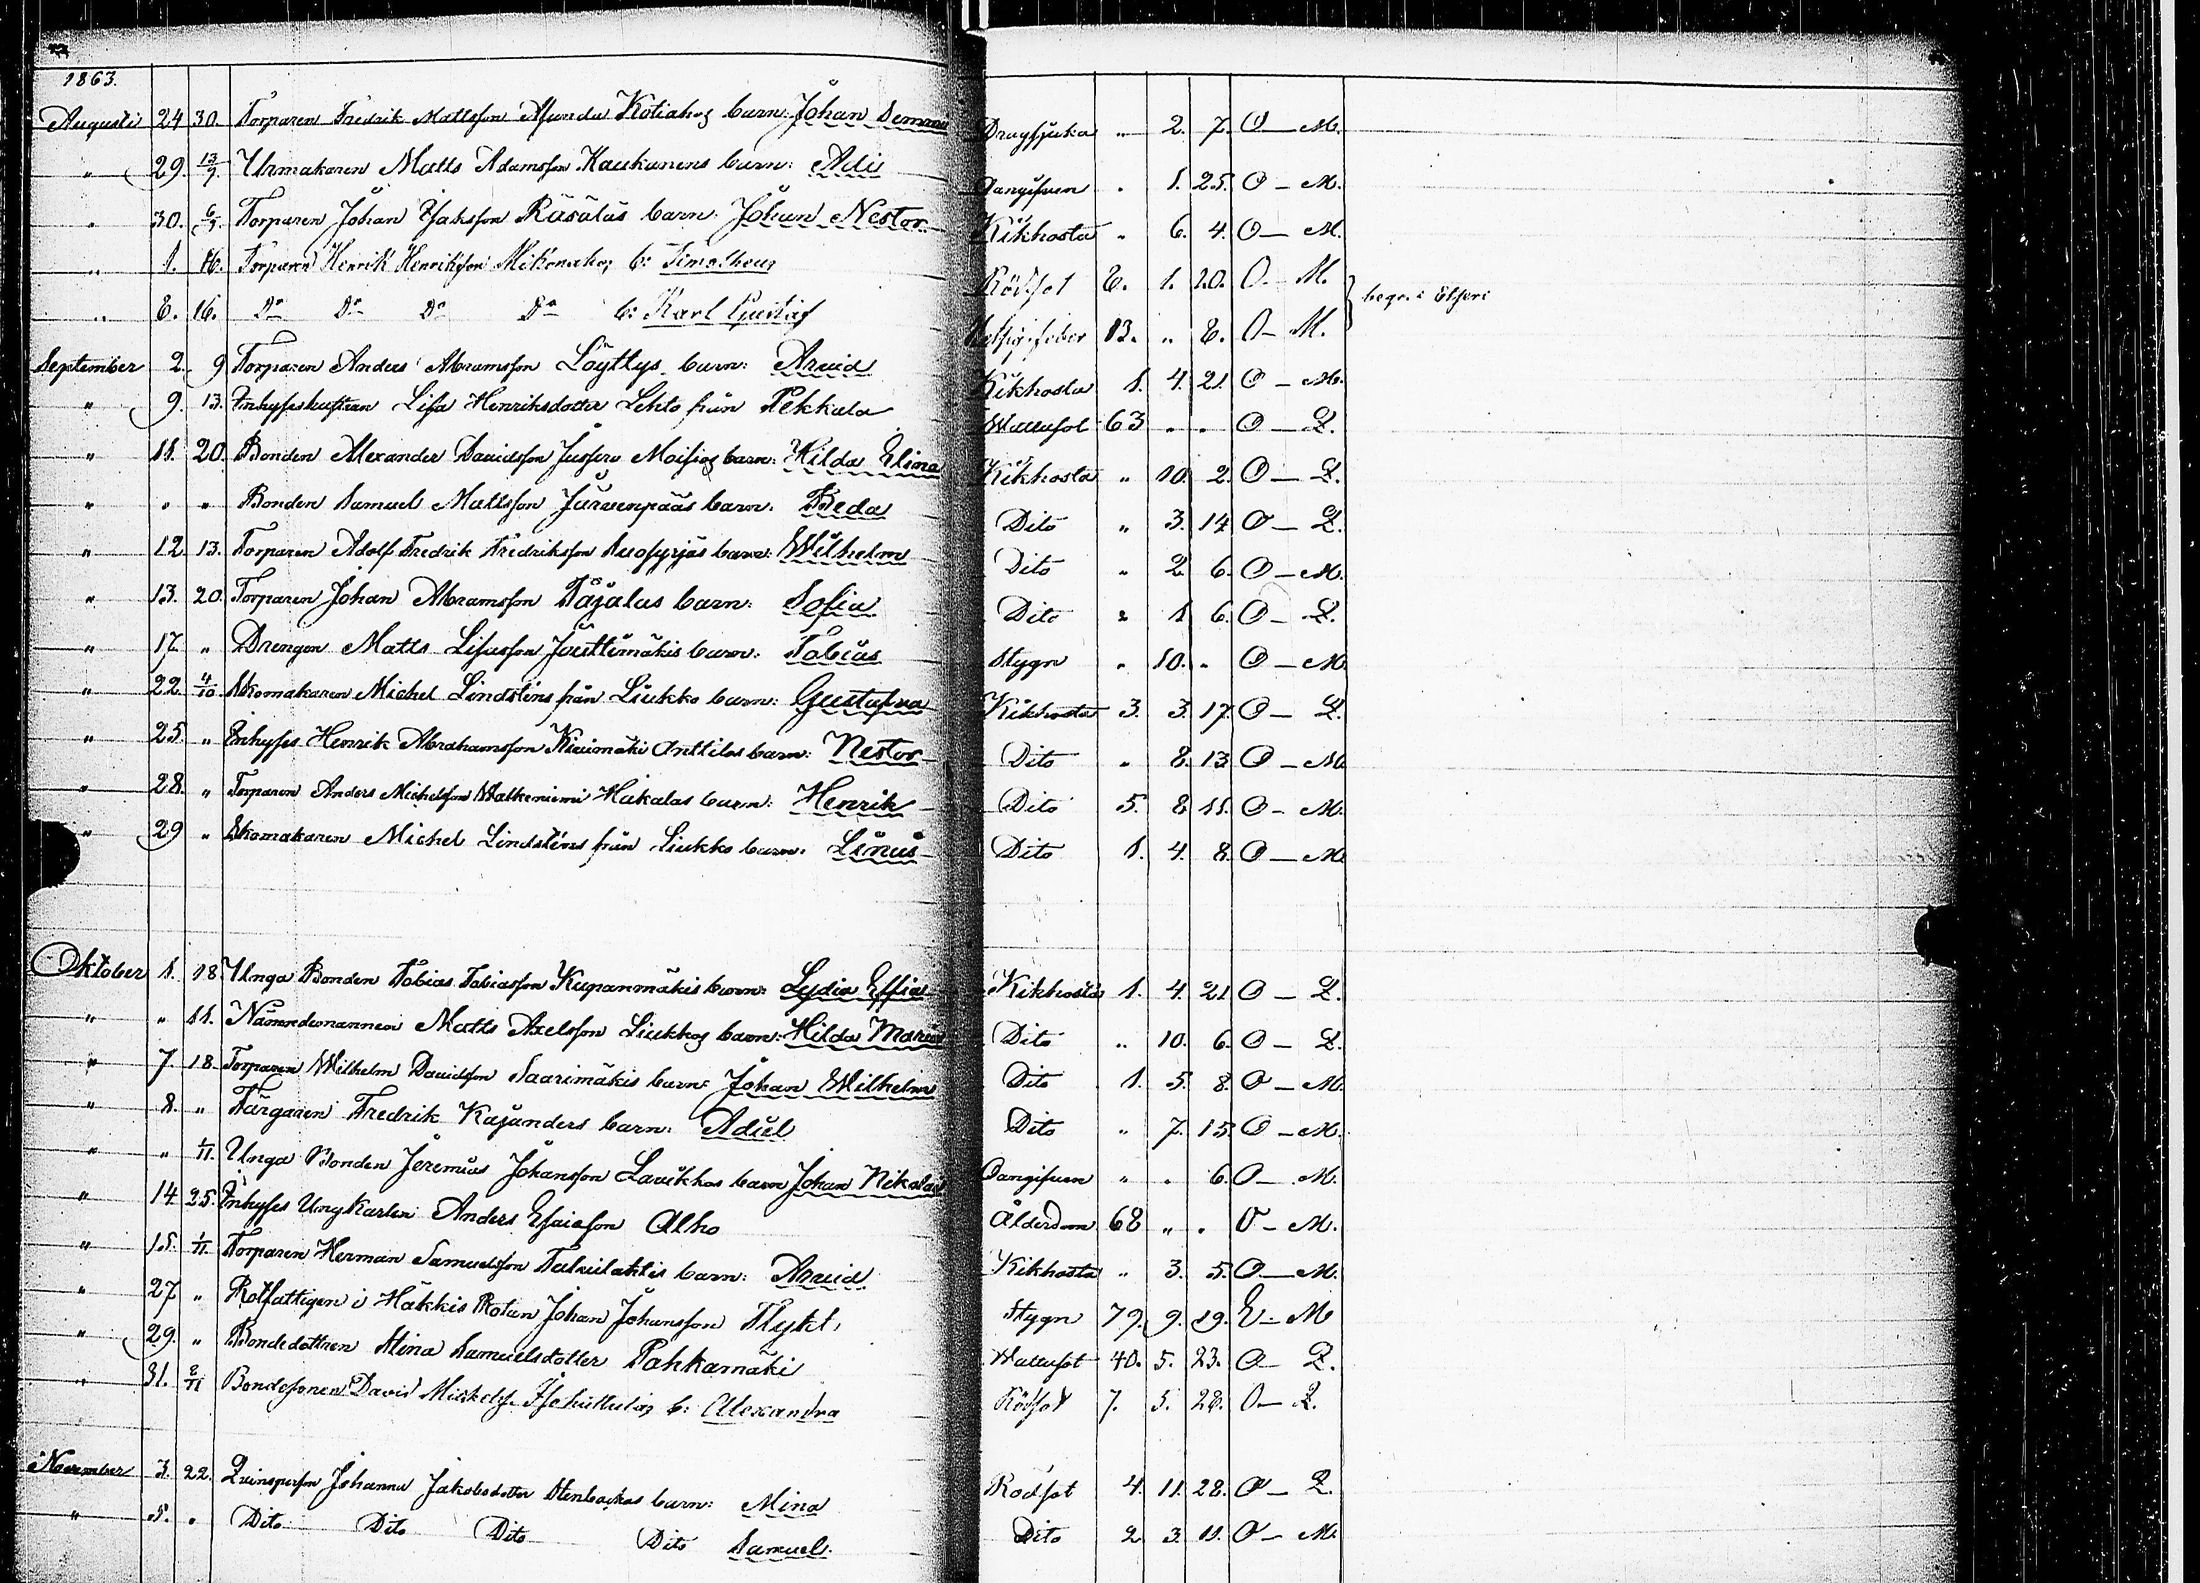 1863.
Augusti 24 30. Torparen Fredrik Mattsson Asunda Kotiahos barn: Johan Dragsjuka " 2. 7. O — M.
" 29. 13/9. Urmakaren Matts Adamsson Kaukanens barn: Adi Oangifven . 1. 25. O — M.
" 30. 6/9. Torparen Johan Isaksson Räsäläs barn: Johan Nestor Kikhosta " 6. 4. O — M.
" 1. 16. Torparen Henrik Henriksson Mikonahos b: Timotheus Rödsot 6. 1. 20. O — M.
" 6. 16. Do Do Do Do b: Karl Gustaf feber 13. " 6. O — M. begr. i Etseri
September 2. 9 Torparen Anders Abramsson Löyttys barn: Arvid Kikhosta 1. 4. 21. O — M.
" 9. 13. Inhyseshustran Lisa Henriksdotter Lehto från Pekkala Wattusot 63 . . O — Q.
" 11. 20. Bonden Alexander Davidsson Jussero Moisios barn: Hilda Elina Kikhosta " 10. 2. O — Q.
" " " Bonden Samuel Mattsson Järvenpääs barn: Beda Dito " 3. 14 O — Q.
" 12. 13. Torparen Adolf Fredrik Fredriksson Suosyrjäs barn: Wilhelm Dito " 2 6. O — M.
" 13. 20. Torparen Johan Abramsson Täjäläs barn: Sofia Dito " 1 6. O — Q.
" 17. " Drengen Matts Lisasson Jouttimäkis barn: Tobias Stygn " 10. . O — M.
" 22. 4/10. Skomakaren Michel Lindstens från Liukko barn: Gustafva Kikhosta 3. 3. 17. O — Q.
" 25. " Inhyses Henrik Abrahamsson Kivimäki Anttilas barn: Nestor Dito " 8. 13 O — M.
" 28. " Torparen Anders Michelsson Walkeniemi Hakalas barn: Henrik Dito 5. 8 11. O — M.
" 29 " Skomakaren Michel Lindsténs från Liukko barn: Linus Dito 1. 4. 8. O — M.
Oktober 1. 18 Unga Bonden Tobias Tobiasson Kupanmäkis barn: Lydia Effia Kikhosta 1. 4. 21 O — Q.
" " 11. Nämndemannen Matts Axelsson Liukkos barn: Hilda Maria Dito " 10. 6. O — Q.
" 7. 18. Torparen Wilhelm Davidsson Saarimäkis barn: Johan Wilhelm Dito 1. 5. 8. O — M.
" 8. " Färgaren Fredrik Kajanders barn: Adiel Dito " 7. 15. O — M.
" " 1/11. Unga Bonden Jeremias Johansson Laukkos barn Johan Nikolai Oangifven " . 6. O — M.
" 14. 25. Inhyses Ungkarlen Anders Esaiasson Alho Ålderdom 68 " . O — M.
" 15. 1/11. Torparen Herman Samuelsson barn: Arvid Kikhosta " 3. 5. O — M.
" 27. " Rotfattigen i Häkkis Rotan Johan Johansson Flykt, Stygn 79. 9. 19. E — M
" 29. " Bondedottren Mina Samuelsdotter Pahkamäki Wattusot 40. 5. 23. O — Q.
" 31. 8/11 Bondesonen David Mickelss. b: Alexandra Rödsot 7. 5. 28. O — Q.
November 3. 22. Qvinsperson Johanna Jakobsdotter Stenbackas barn: Mina Rödsot 4. 11. 28. O — Q.
" 5. . Dito Dito Dito Dito Samuel. Dito 2. 3. 11. O — M.